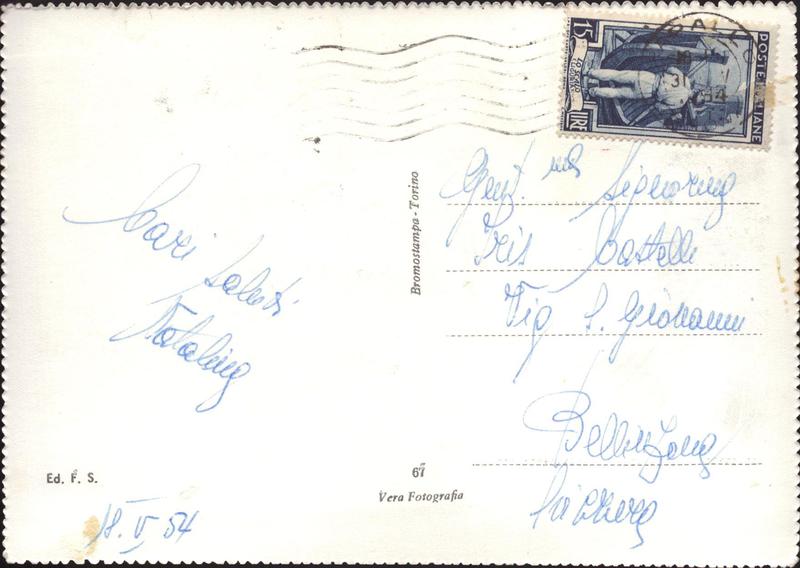 Cari saluti
Natalina
Ed. F. S.
18. V 54
Bromostampa - Torino
67
Vera Fotografia
15
LIRE
LO SCALO
POSTE ITALIANE
31
54
Gent.ma Signorina
Iris Castelli
Via S. Giovanni
Bellinzona
Svizzera